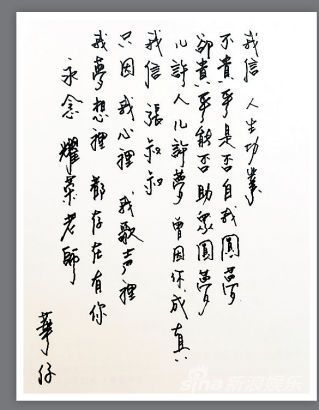 我信 人生功業
不貴乎是否自我圓夢
卻貴乎能否助衆圓夢
几許人几許夢 曾因你成真
我信 張叔叔
只因 我心裡 我歌声裡
我夢想裡 都存在有你
永念 耀榮老師
華仔
sina新浪娱乐